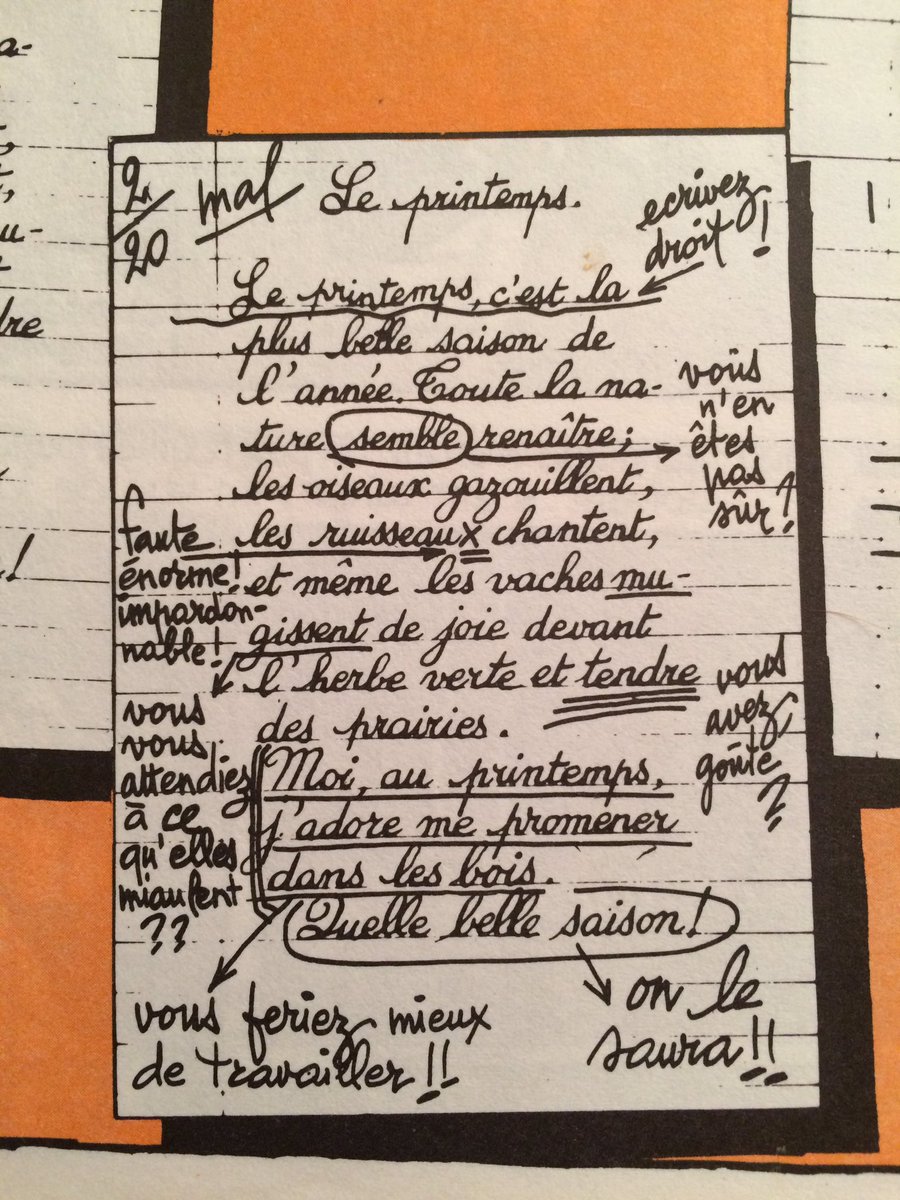 2/20
mal
Le printemps.
ecrivez
droit !
Le printemps, c'est la
plus belle saison de
l'année. Toute la na-
ture semble renaître ;
les oiseaux gazouillent,
les ruisseaux chantent,
et même les vaches mu-
gissent de joie devant
l'herbe verte et tendre
des prairies.
Moi, au printemps,
j'adore me promener
dans les bois.
Quelle belle saison !
vous
n'en
êtes
pas
sûr ?
faute
énorme !
impardon-
nable !
vous
vous
attendiez
à ce
qu'elles
miaulent
??
vous
avez
goûté
?
vous feriez mieux
de travailler !!
on le
saura !!
a-
u-
dre
!